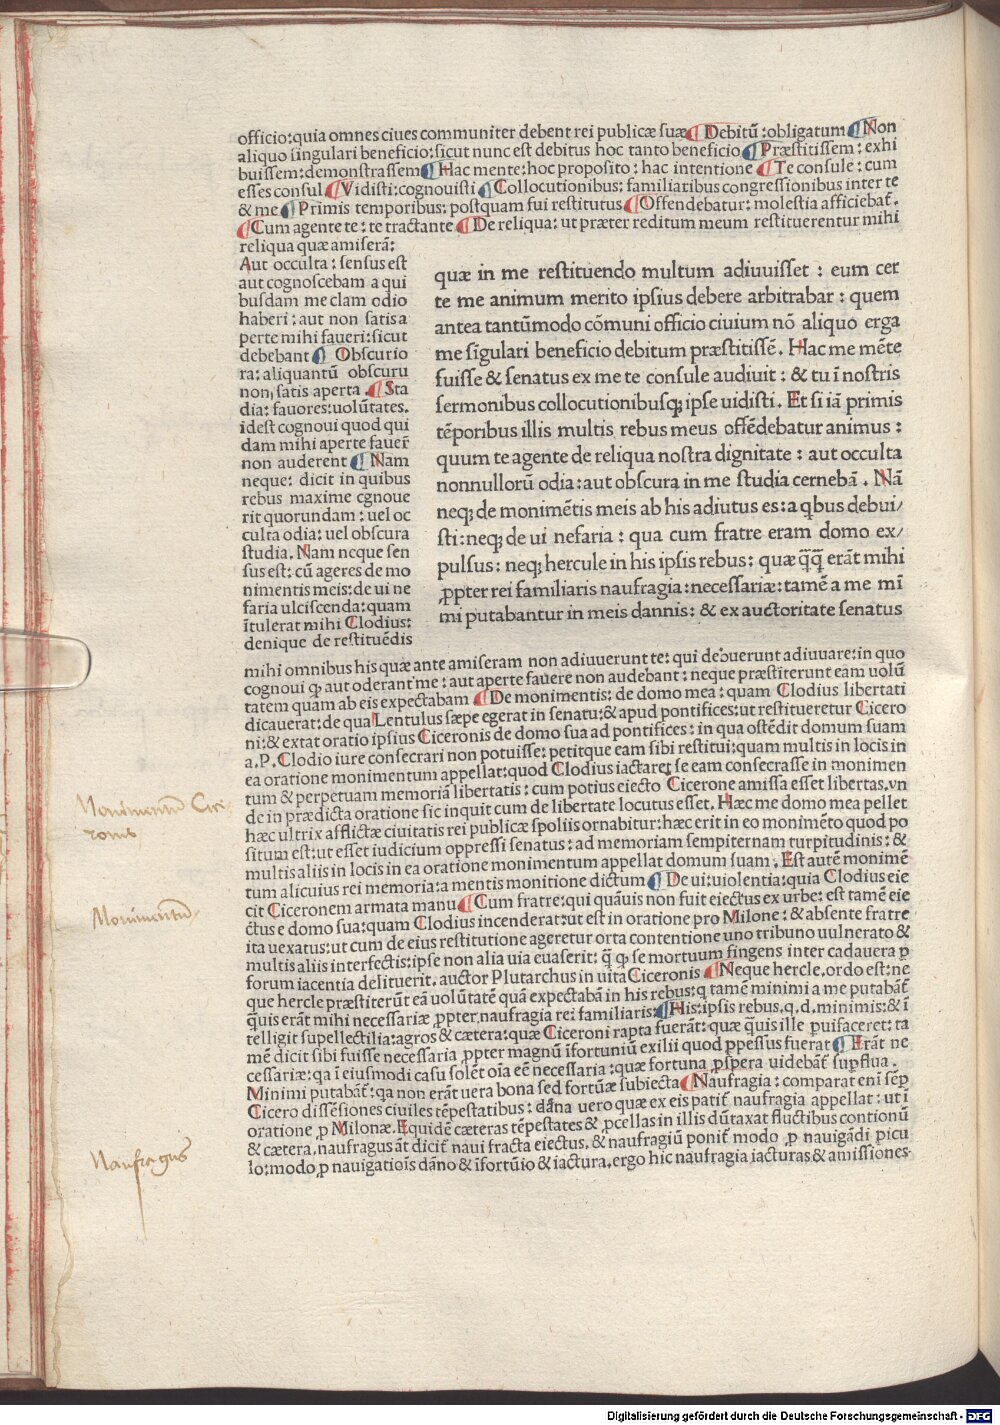 officio:quia omnes ciues communiter debent rei publicæ suæ ¶ Debitū:obligatum ¶ Non
aliquo singulari beneficio:sicut nunc est debitus hoc tanto beneficio ¶ Præstitissem:exhi
buissem:demonstrassem ¶ Hac mente:hoc proposito:hac intentione ¶ Te consule:cum
esses consul ¶ Vidisti:cognouisti ¶ Collocutionibus:familiaribus congressionibus inter te
& me ¶ Primis temporibus:postquam fui restitutus ¶ Offendebatur:molestia afficiebat̄.
¶ Cum agente te:te tractante ¶ De reliqua:ut præter reditum meum restituerentur mihi
reliqua quæ amiserā:
Aut occulta:sensus est
aut cognoscebam a qui
busdam me clam odio
haberi:aut non satis a
perte mihi faueri:sicut
debebant ¶ Obscurio
ra:aliquantū obscuru
non satis aperta. ¶ Stu
dia:fauores:uolūtates.
idest cognoui quod qui
dam mihi aperte fauer̄
non auderent ¶ Nam
neque:dicit in quibus
rebus maxime cgnoue
rit quorundam:uel oc
culta odia:uel obscura
studia. Nam neque sen
sus est:cū ageres de mo
nimentis meis:de ui ne
faria ulciscenda:quam
ītulerat mihi Clodius:
denique de restituēdis
quæ in me restituendo multum adiuuisset : eum cer
te me animum merito ipsius debere arbitrabar : quem
antea tantūmodo cōmuni officio ciuium nō aliquo erga
me sīgulari beneficio debitum præstitissē. Hac me mēte
fuisse & senatus ex me te consule audiuit : & tu ī nostris
sermonibus collocutionibusq; ipse uidisti. Et si iā primis
tēporibus illis multis rebus meus offēdebatur animus :
quum te agente de reliqua nostra dignitate : aut occulta
nonnullorū odia:aut obscura in me studia cernebā. Nā
neq; de monimētis meis ab his adiutus es:a qbus debui/
sti:neq; de ui nefaria : qua cum fratre eram domo ex/
pulsus : neq; hercule in his ipsis rebus: quæ q̄q̄ erāt mihi
ꝓpter rei familiaris naufragia:necessariæ:tamē a me mī
mi putabantur in meis dannis: & ex auctoritate senatus
mihi omnibus his quæ ante amiseram non adiuuerunt te:qui debuerunt adiuuare:in quo
cognoui ꝙ aut oderant me:aut aperte fauere non audebant:neque præstiterunt eam uolū
tatem quam ab eis expectabam ¶ De monimentis:de domo mea:quam Clodius libertati
dicauerat:de qua Lentulus sæpe egerat in senatu:& apud pontifices:ut restitueretur Cicero
ni:& extat oratio ipsius Ciceronis de domo sua ad pontifices:in qua ostēdit domum suam
a.P.Clodio iure consecrari non potuisse:petitque eam sibi restitui:quam multis in locis in
ea oratione monimentum appellat:quod Clodius iactaret se eam consecrasse in monimen
tum & perpetuam memoriā libertatis:cum potius eiecto Cicerone amissa esset libertas.vn
de in prædicta oratione sic inquit cum de libertate locutus esset. Hæc me domo mea pellet
hæc ultrix afflictæ ciuitatis rei publicæ spoliis ornabitur:hæc erit in eo monimēto quod po
situm est:ut esset iudicium oppressi senatus:ad memoriam sempiternam turpitudinis:&
multis aliis in locis in ea oratione monimentum appellat domum suam. Est autē monimē
tum alicuius rei memoria:a mentis monitione dictum ¶ De ui:uiolentia:quia Clodius eie
cit Ciceronem armata manu ¶ Cum fratre:qui quāuis non fuit eiectus ex urbe:est tamē eie
ctus e domo sua:quam Clodius incenderat:ut est in oratione pro Milone:& absente fratre
ita uexatus:ut cum de eius restitutione ageretur orta contentione uno tribuno uulnerato &
multis aliis interfectis:ipse non alia uia euaserit:q̄ ꝙ se mortuum fingens inter cadauera ꝑ
forum iacentia delituerit.auctor Plutarchus in uita Ciceronis ¶ Neque hercle.ordo est:ne
que hercle præstiterūt eā uolūtatē quā expectabā in his rebus:q tamē minimi a me putabāt̄
q̄uis erāt mihi necessariæ ꝓpter naufragia rei familiaris: ¶ His:ipsis rebus.q.d.minimis:& ī
telligit supellectilia:agros & cætera:quæ Ciceroni rapta fuerāt:quæ q̄uis ille ꝓuifaceret:ta
mē dicit sibi fuisse necessaria ꝓpter magnū īfortuniū exilii quod ꝑpessus fuerat ¶ Erāt ne
cessariæ:qa ī eiusmodi casu solēt oīa eē necessaria:quæ fortuna ꝓspera uidebāt̄ supflua.
Minimi putabāt̄:qa non erāt uera bona sed fortūæ subiecta ¶ Naufragia:comparat enī sēp
Cicero dissēsiones ciuiles tēpestatibus:dāna uero quæ ex eis patit̄ naufragia appellat:ut ī
oratione ꝓ Milonæ. Equidē cæteras tēpestates & ꝓcellas in illis dūtaxat fluctibus contionū
& cætera.naufragus āt dicit̄ naui fracta eiectus.& naufragiū ponit̄ modo ꝓ nauigādi picu
lo:modo ꝓ nauigatiōis dāno & īfortūio & iactura.ergo hic naufragia iacturas & amissiones
Monumentū Cice
ronis
Monumentū
Naufragus
Digitalisierung gefördert durch die Deutsche Forschungsgemeinschaft - DFG